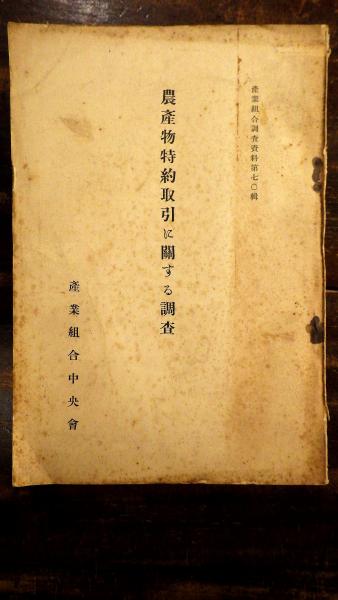 産業組合調査資料第七〇輯
農産物特約取引に關する調査
産業組合中央會